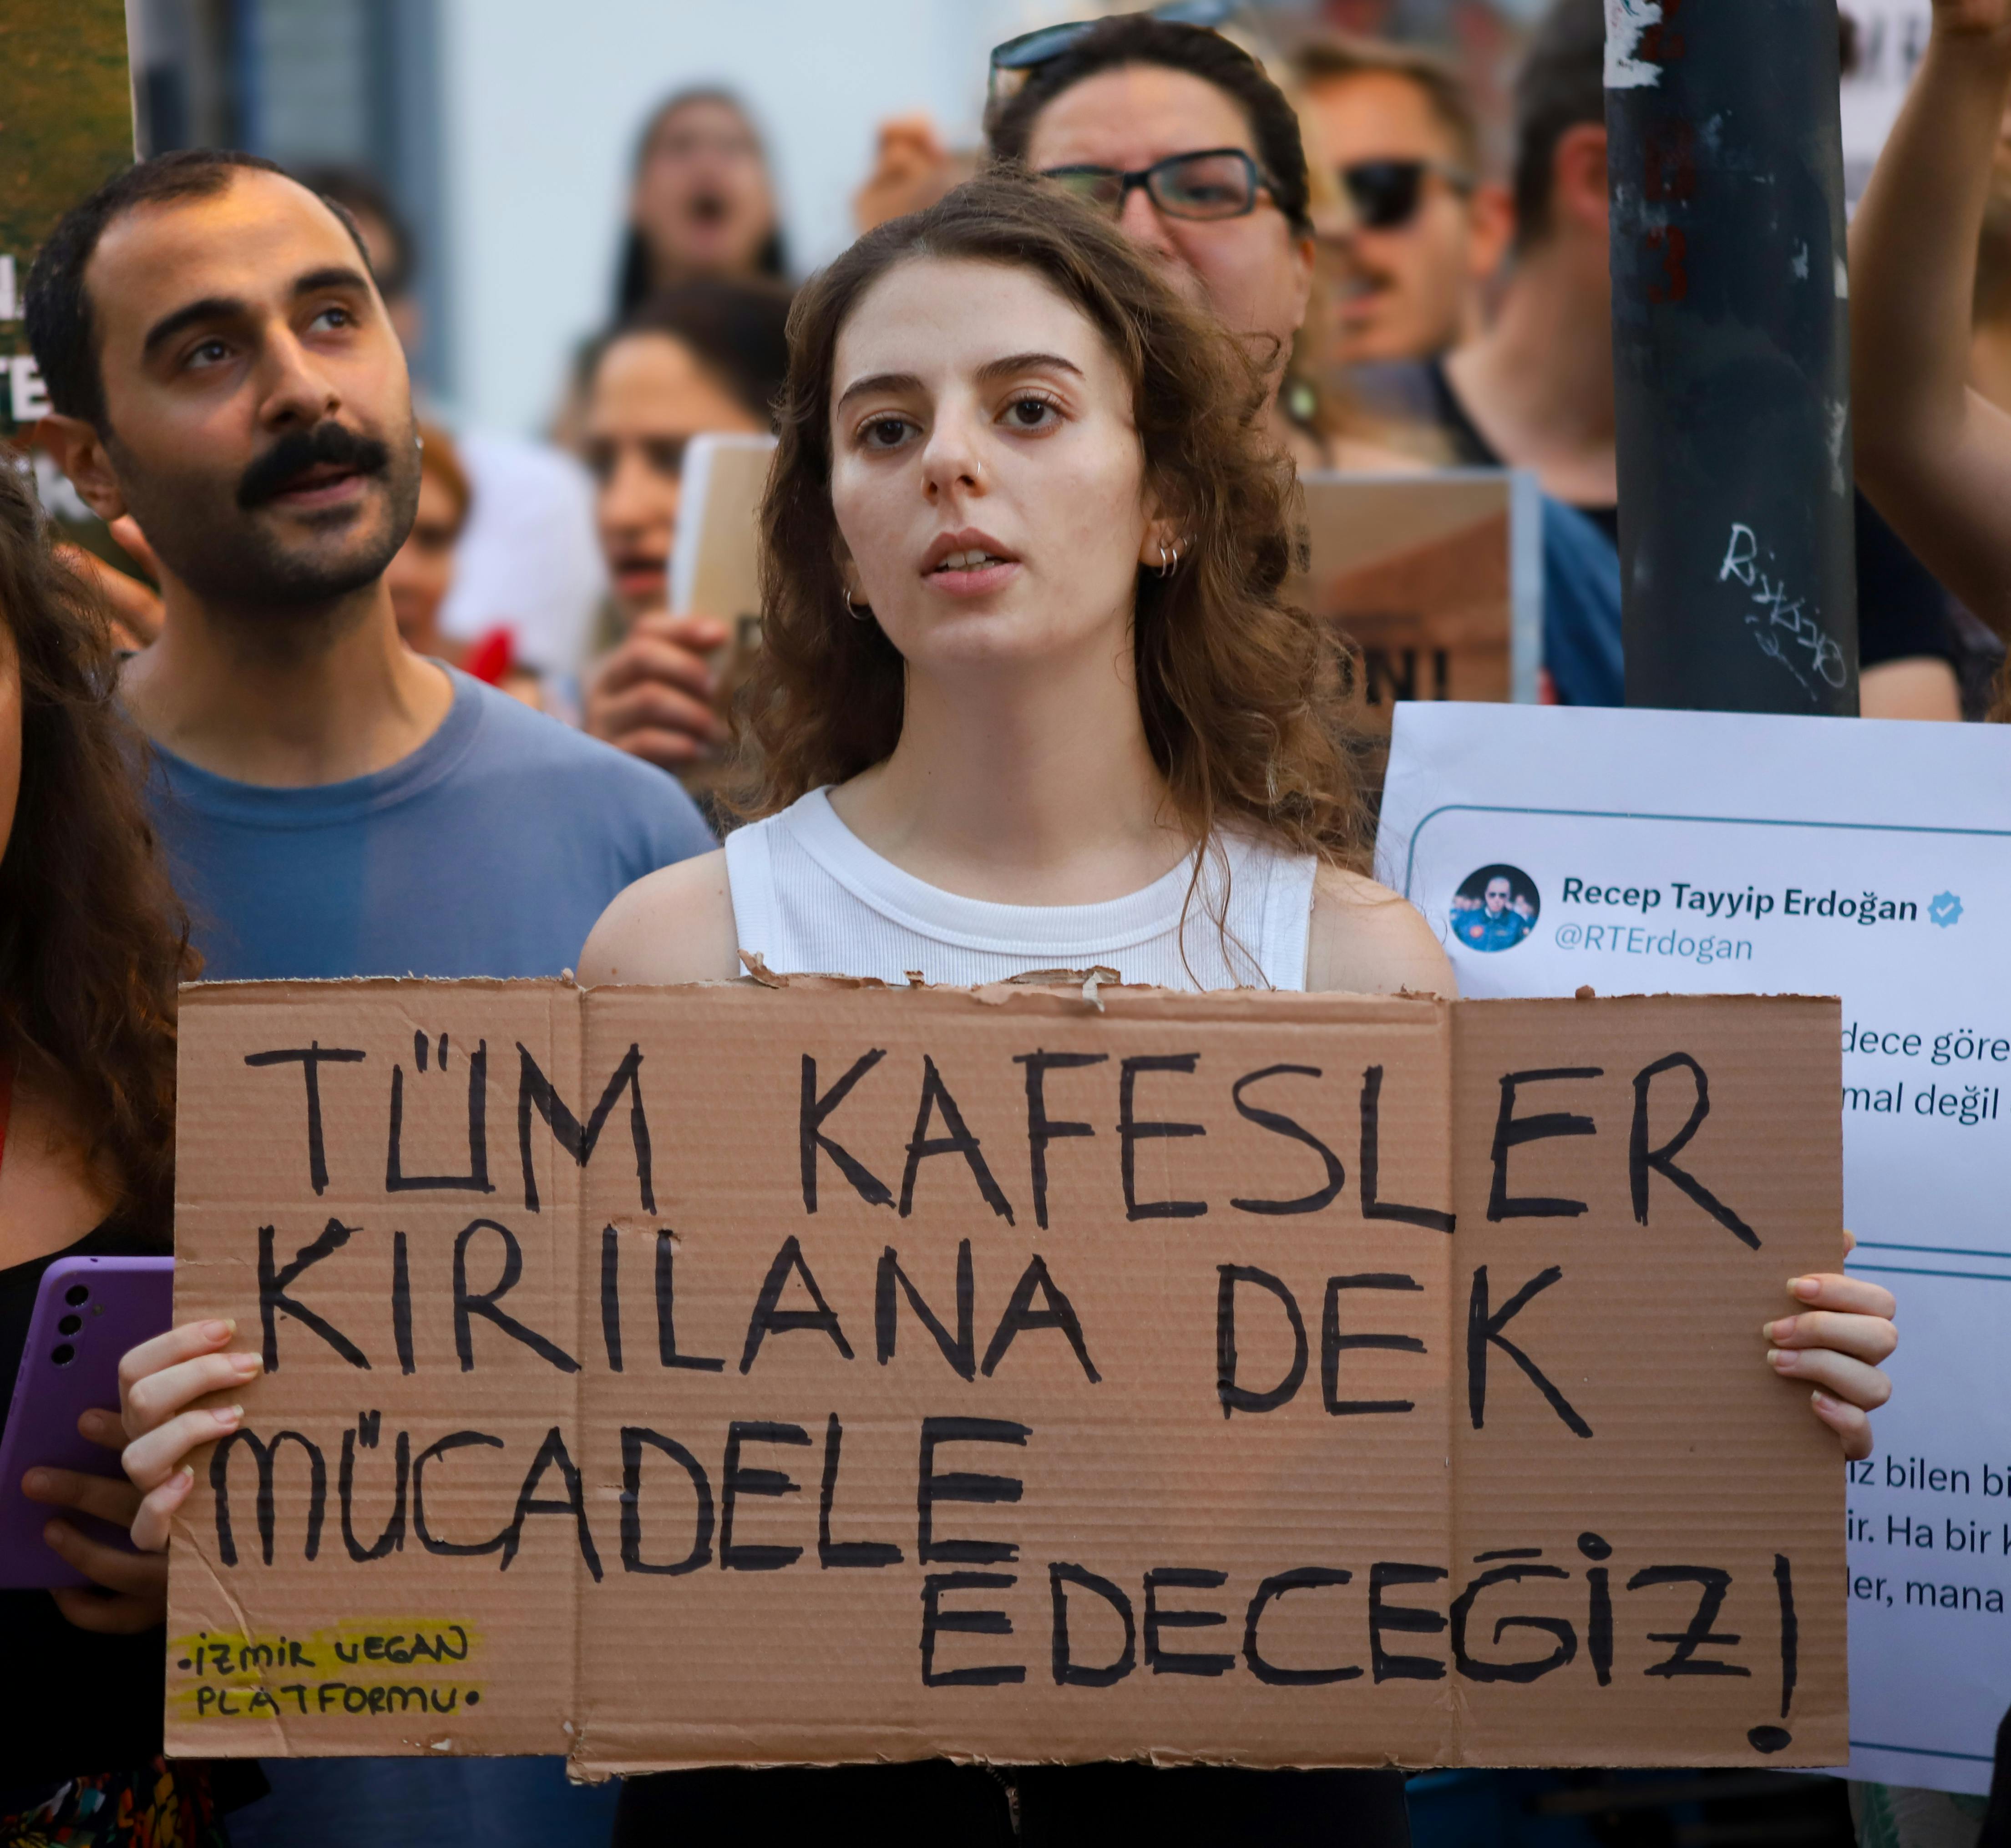 TÜM KAFESLER
KIRILANA DEK
MÜCADELE
EDECEĞİZ!
•İZMİR VEGAN
PLATFORMU•
Recep Tayyip Erdoğan
@RTErdogan
göre
değil
bilen
Ha bir
mana